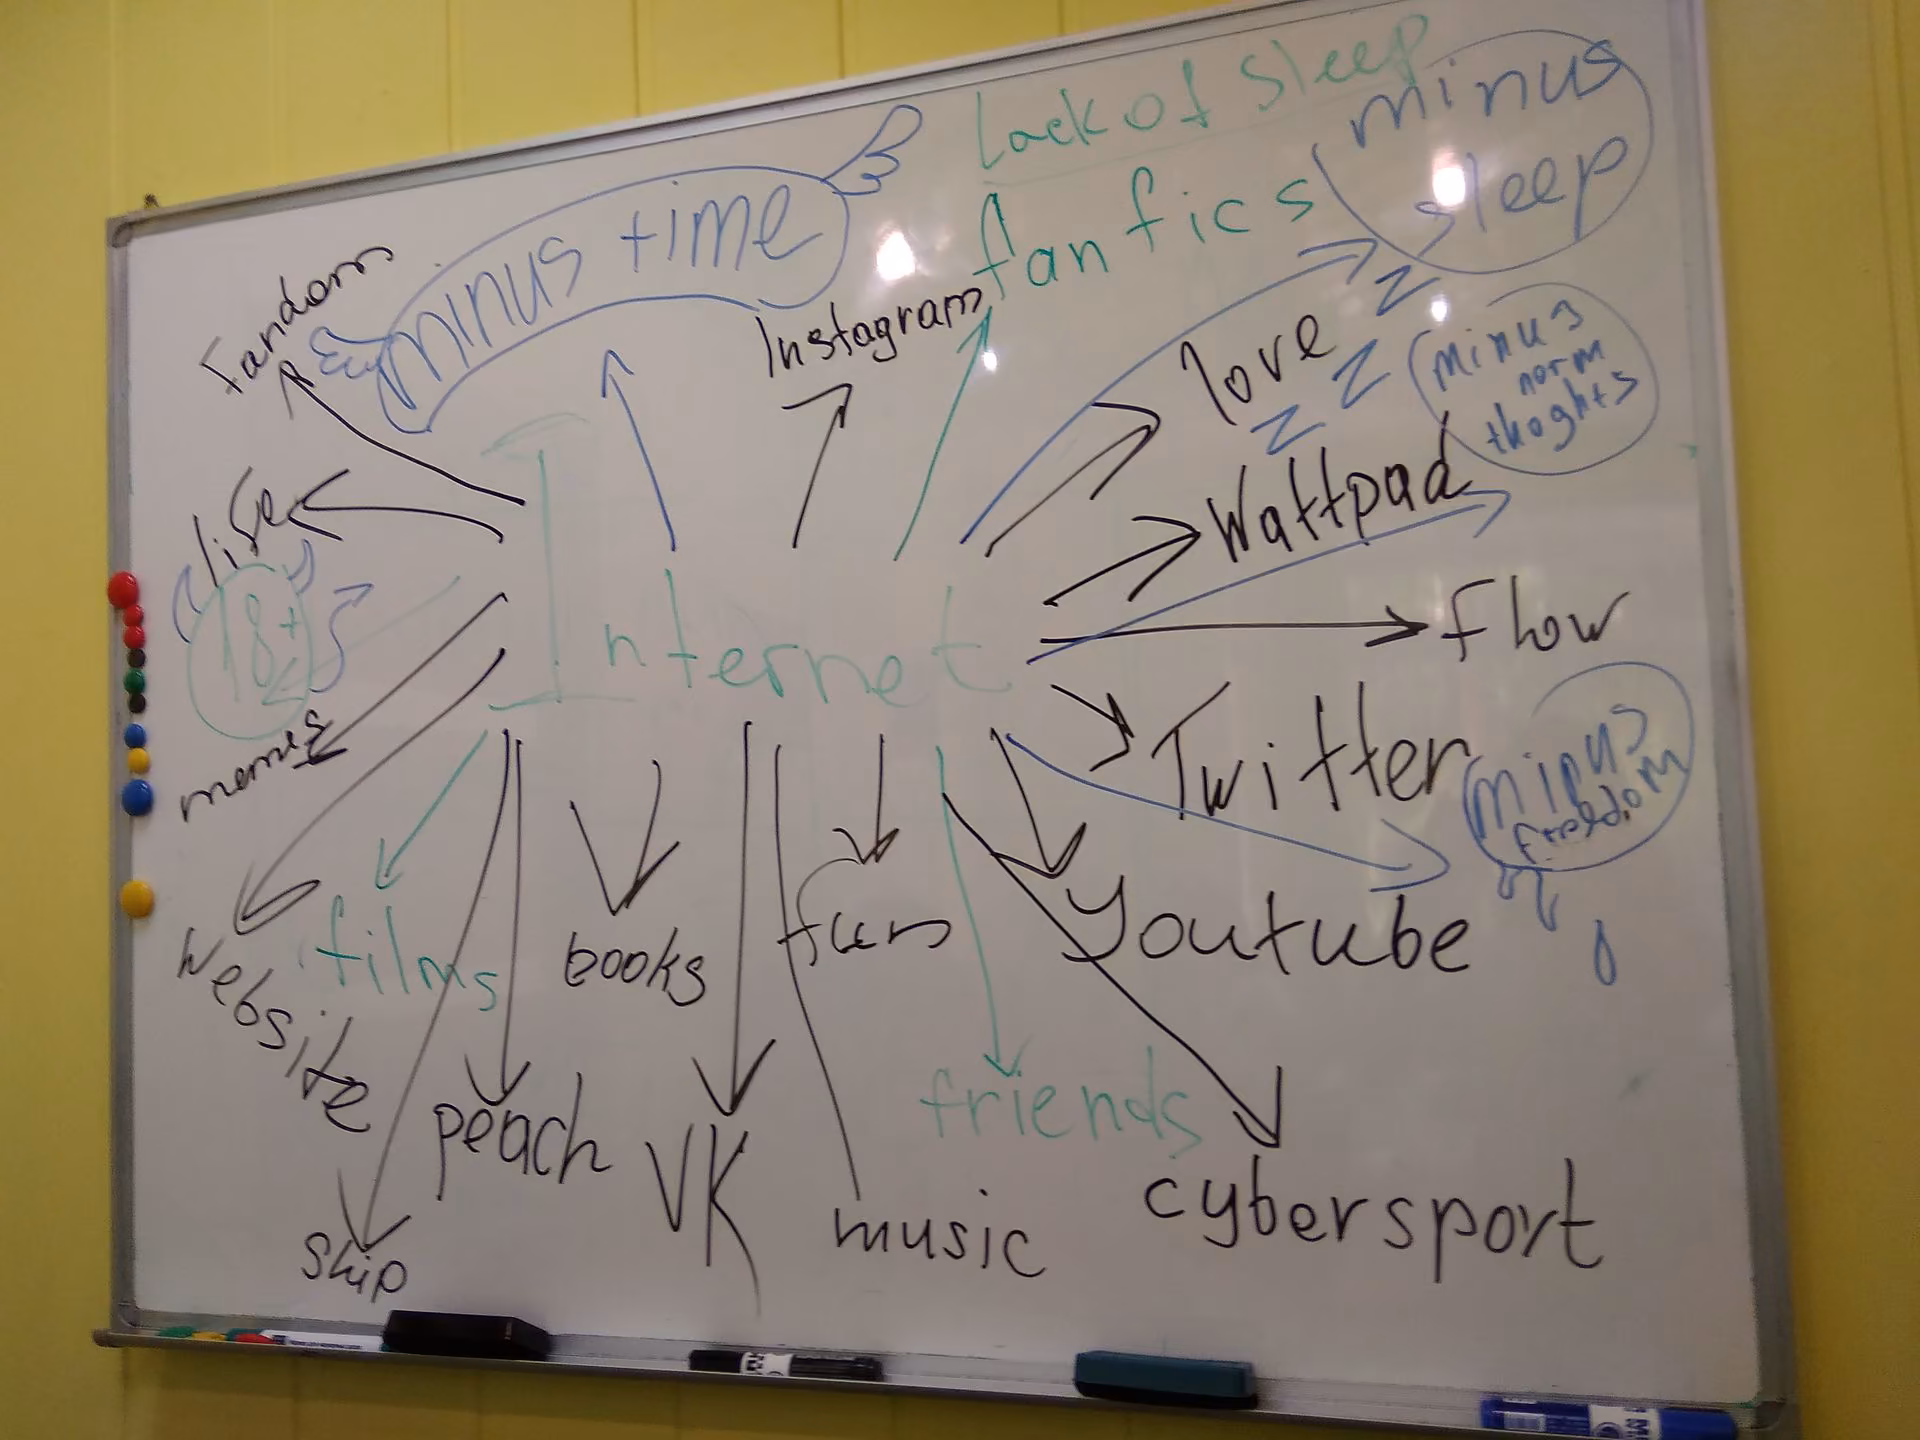 Lack of sleep
minus
sleep
minus time
fanfics
Fandom
Instagram
love
z
z
z
minus
norm
thoghts
life
Wattpad
18+
Internet
flow
memes
Twitter
minus
freedom
Website
films
books
Youtube
peach
VK
friends
skip
music
cybersport